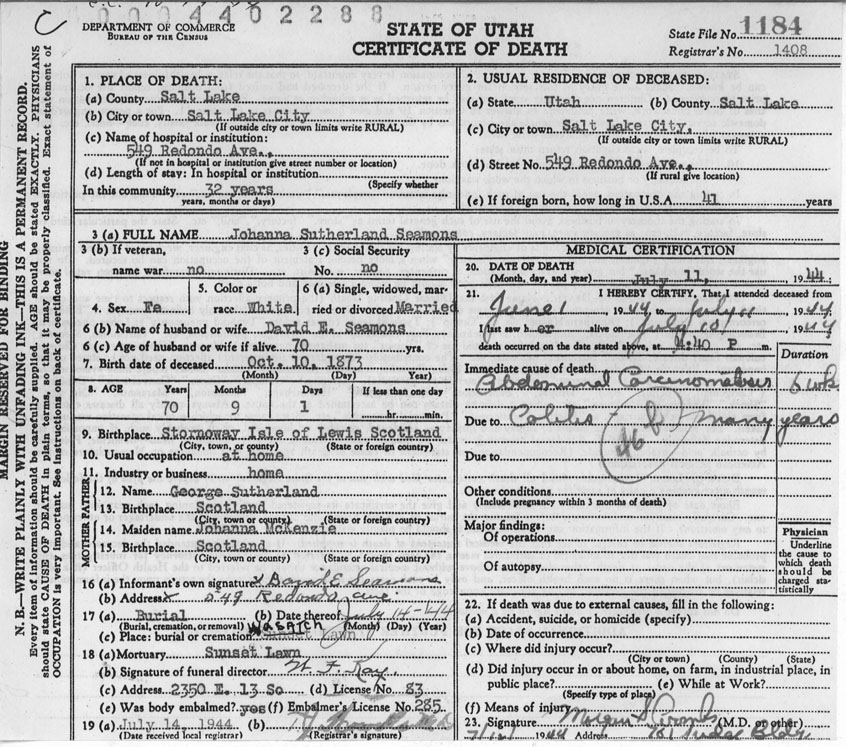 0004402288
DEPARTMENT OF COMMERCE
BUREAU OF THE CENSUS
STATE OF UTAH
CERTIFICATE OF DEATH
State File No. 1184
Registrar's No. 1408
MARGIN RESERVED FOR BINDING
N. B.—WRITE PLAINLY WITH UNFADING INK—THIS IS A PERMANENT RECORD.
Every item of information should be carefully supplied. AGE should be stated EXACTLY. PHYSICIANS
should state CAUSE OF DEATH in plain terms, so that it may be properly classified. Exact statement of
OCCUPATION is very important. See instructions on back of certificate.
1. PLACE OF DEATH:
(a) County Salt Lake
(b) City or town Salt Lake City
(If outside city or town limits write RURAL)
(c) Name of hospital or institution:
549 Redondo Ave.,
(If not in hospital or institution give street number or location)
(d) Length of stay: In hospital or institution
(Specify whether
In this community 32 years
years, months or days)
2. USUAL RESIDENCE OF DECEASED:
(a) State Utah (b) County Salt Lake
(c) City or town Salt Lake City,
(If outside city or town limits write RURAL)
(d) Street No. 549 Redondo Ave.,
(If rural give location)
(e) If foreign born, how long in U.S.A. 41 years
3 (a) FULL NAME Johanna Sutherland Seamons
3 (b) If veteran, 3 (c) Social Security
name war no No. no
5. Color or 6 (a) Single, widowed, mar-
4. Sex Fe race White ried or divorced Married
6 (b) Name of husband or wife David E. Seamons
6 (c) Age of husband or wife if alive 70 yrs.
7. Birth date of deceased Oct. 10, 1873
(Month) (Day) Year)
8. AGE Years Months Days If less than one day
70 9 1 hr. min.
9. Birthplace Stornoway Isle of Lewis Scotland
(City, town, or county) (State or foreign country)
10. Usual occupation at home
11. Industry or business home
FATHER
12. Name George Sutherland
13. Birthplace Scotland
(City, town or county) (State or foreign country)
MOTHER
14. Maiden name Johanna McKenzie
15. Birthplace Scotland
(City, town or county) (State or foreign country)
16 (a) Informant's own signature x David E Seamons
(b) Address x 549 Redondo ave
17 (a) Burial (b) Date thereof July 14-44
(Burial, cremation, or removal) (Month) (Day) (Year)
(c) Place: burial or cremation WASATCH Lawn
18 (a) Mortuary Sunset Lawn
(b) Signature of funeral director
(c) Address 2350 E. 13 So (d) License No. 83
(e) Was body embalmed? yes (f) Embalmer's License No. 285
19 (a) July 14, 1944 (b)
(Date received local registrar) (Registrar's signature)
MEDICAL CERTIFICATION
20. DATE OF DEATH
(Month, day, and year) July 11, 1944
21. I HEREBY CERTIFY, That I attended deceased from
June 1 1944 to July 11 1944;
I last saw her alive on July 10 1944
death occurred on the date stated above, at 4:40 P m.
Duration
Immediate cause of death
Abdominal Carcinomatosis 6 wks
Due to Colitis many years
46 b
Due to
Other conditions
(Include pregnancy within 3 months of death)
Major findings:
Of operations
Of autopsy
Physician
Underline
the cause to
which death
should be
charged sta-
tistically
22. If death was due to external causes, fill in the following:
(a) Accident, suicide, or homicide (specify)
(b) Date of occurrence
(c) Where did injury occur?
(City or town) (County) (State)
(d) Did injury occur in or about home, on farm, in industrial place, in
public place? (e) While at Work?
(Specify type of place)
(f) Means of injury
23. Signature (M.D. or other)
1944 Address Judge Bldg